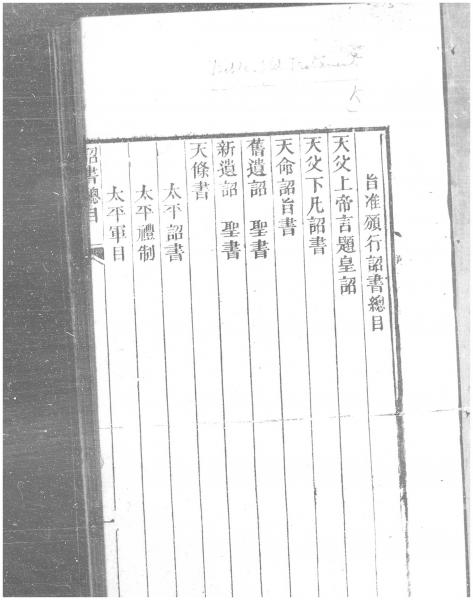 Bible Old Testament
旨准頒行詔書總目
天父上帝言題皇詔
天父下凡詔書
天命詔旨書
舊遺詔 聖書
新遺詔 聖書
天條書
太平詔書
太平禮制
太平軍目
詔書總目